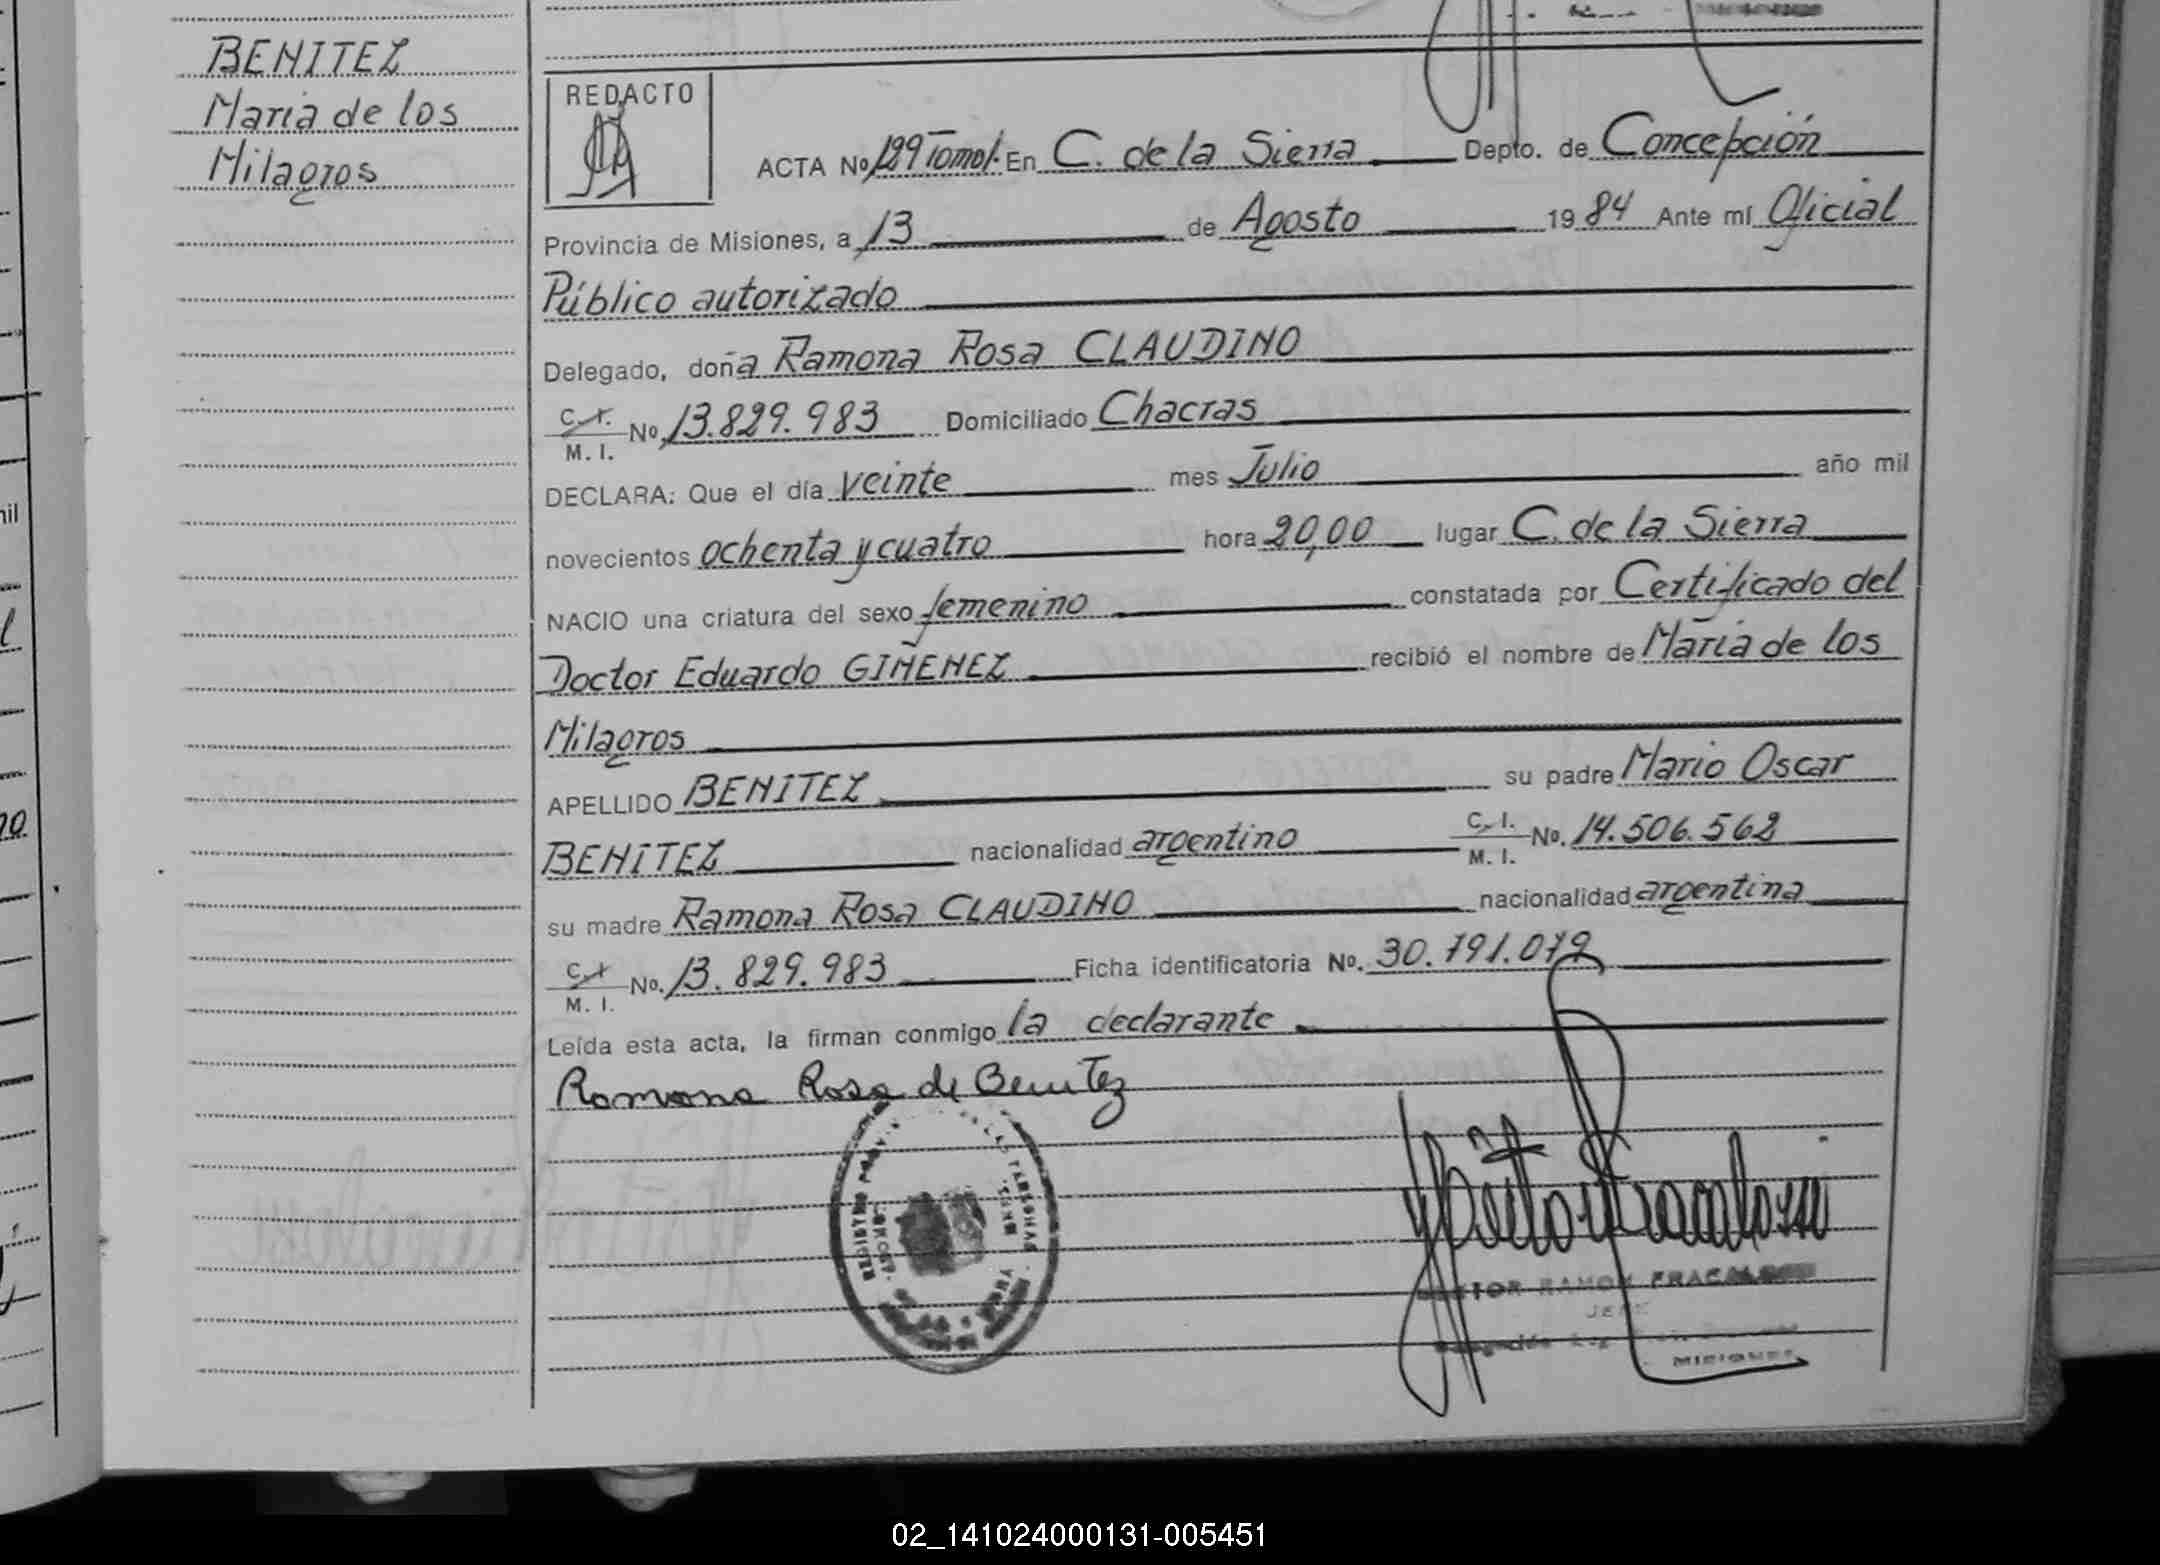 BENITEZ
Maria de los
Milagros
REDACTO
ACTA No 129 Tomo I. En C. de la Sierra Depto. de Concepción
Provincia de Misiones, a 13 de Agosto 1984 Ante mí Oficial
Público autorizado
Delegado, doña Ramona Rosa CLAUDINO
C. I. M. I. No 13.829.983 Domiciliado Chacras
DECLARA: Que el día veinte mes Julio año mil
novecientos ochenta y cuatro hora 20,00 lugar C. de la Sierra
NACIO una criatura del sexo femenino constatada por Certificado del
Doctor Eduardo GIMENEZ recibió el nombre de Maria de los
Milagros
APELLIDO BENITEZ su padre Mario Oscar
BENITEZ nacionalidad argentino C. I. M. I. No. 14.506.562
su madre Ramona Rosa CLAUDINO nacionalidad argentina
C. I. M. I. No. 13.829.983 Ficha identificatoria No. 30.791.072
Leída esta acta, la firman conmigo la declarante
Ramona Rosa de Benitez
RAMON
JEFE
MISIONES
02_141024000131-005451